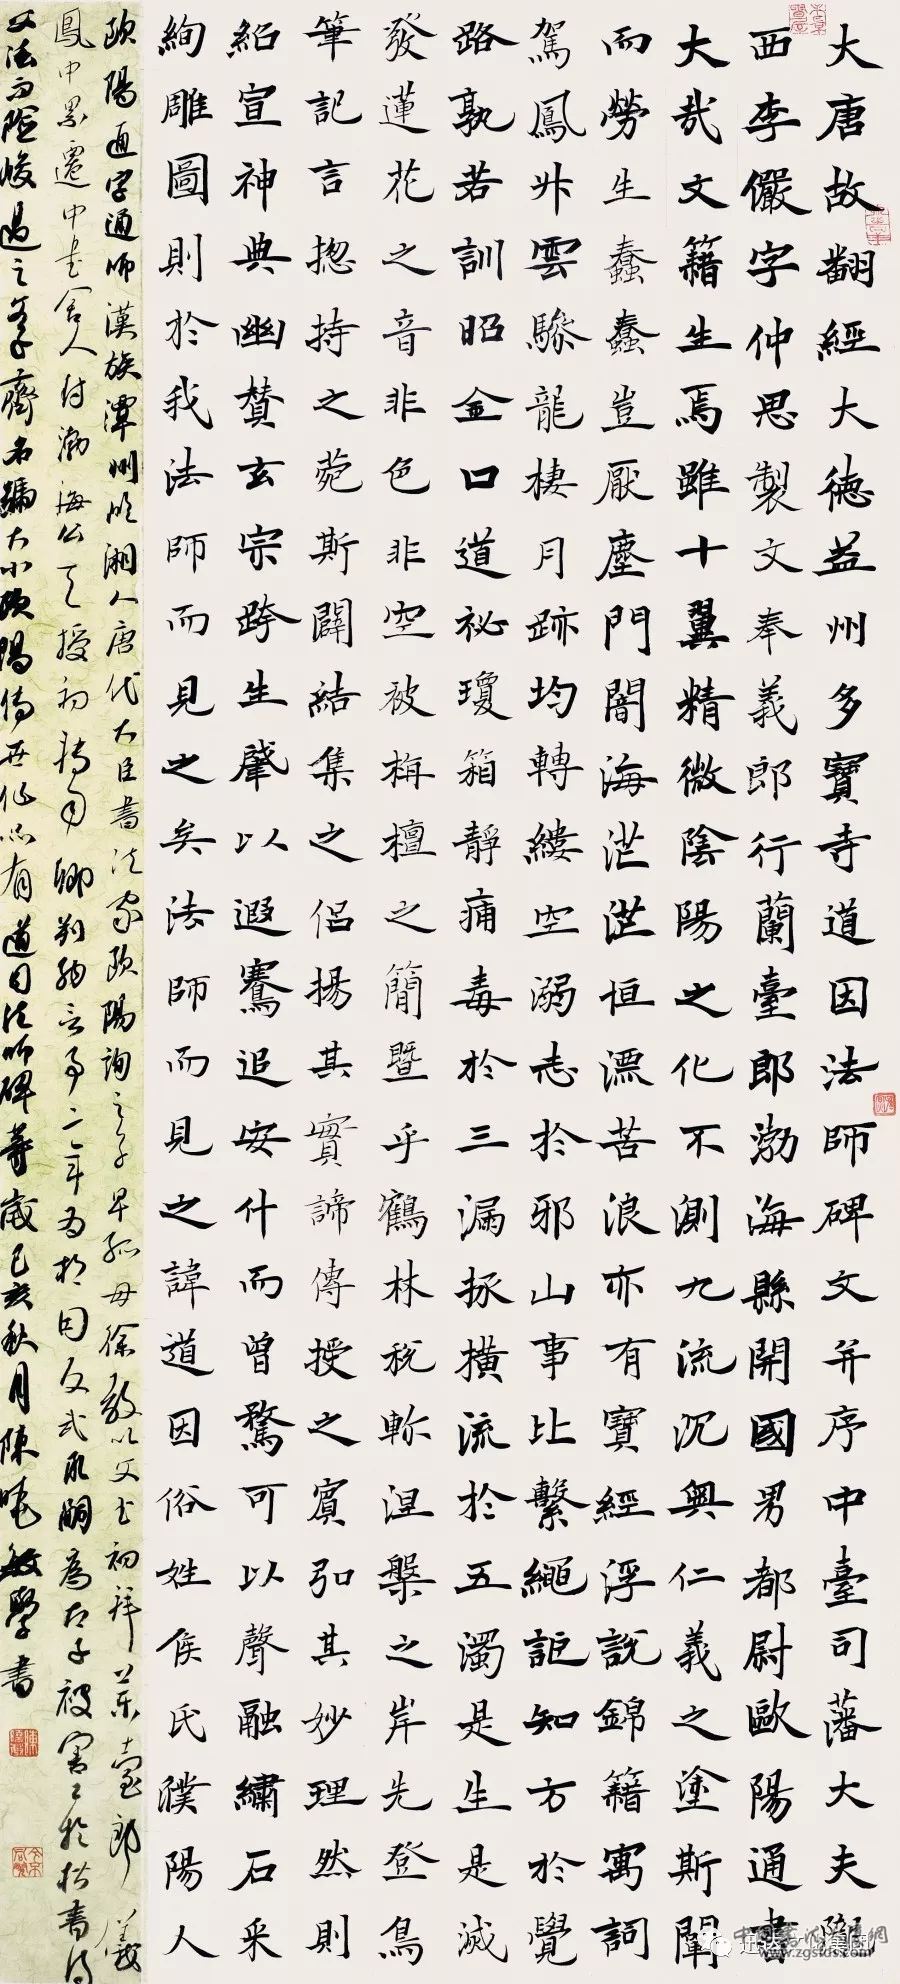 大唐故翻經大德益州多寶寺道因法師碑文并序中臺司藩大夫隴
西李儼字仲思製文奉義郎行蘭臺郎渤海縣開國男都尉歐陽通書
大哉文籍生焉雖十翼精微陰陽之化不測九流沉奧仁義之塗斯闡
而勞生蠢蠢豈厭塵門闇海茫茫恒漂苦浪亦有寶經浮說錦籍寓詞
駕鳳升雲驂龍棲月跡均轉縷空溺志於邪山事比繫繩詎知方於覺
路孰若訓昭金口道祕瓊箱靜痡毒於三漏拯橫流於五濁是生是滅
發蓮花之音非色非空被栴檀之簡暨乎鶴林稅軫涅槃之岸先登鳥
筆記言揔持之菀斯闢結集之侶揚其實諦傳授之賓弘其妙理然則
紹宣神典幽贊玄宗跨生肇以遐騫追安什而曾騖可以聲融繡石采
絢雕圖則於我法師而見之矣法師而見之諱道因俗姓侯氏濮陽人
歐陽通字通師漢族潭州臨湘人唐代大臣書法家歐陽詢之子早孤母徐教以父書初拜蘭臺郎儀
鳳中累遷中書舍人封渤海公天授初轉司卿判納言事二年為相因反武承嗣為太子被害工於楷書得
父法而險峻過之父子齊名號大小歐陽傳世作品有道因法師碑等歲己亥秋月陳曉敏學書
www.zgsfds.com